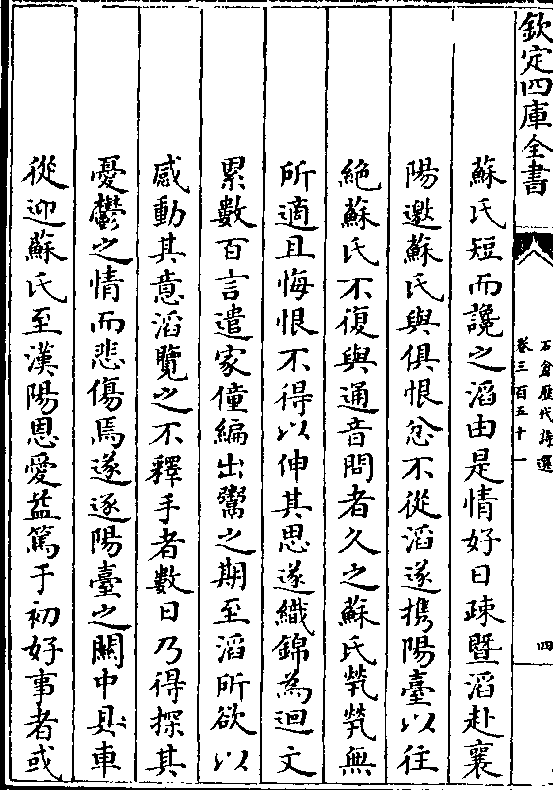 欽定四庫全書
石倉歷代詩選
卷三百五十一
四
蘇氏短而讒之滔由是情好日疎暨滔赴襄
陽邀蘇氏與俱恨忿不從滔遂携陽臺以往
絶蘇氏不復與通音問者久之蘇氏煢煢無
所適且悔恨不得以伸其思遂織錦為迴文
累數百言遣家僮編出鬻之期至滔所欲以
感動其意滔覽之不釋手者數日乃得探其
憂鬱之情而悲傷焉遂逐陽臺之關中具車
從迎蘇氏至漢陽恩愛益篤于初好事者或